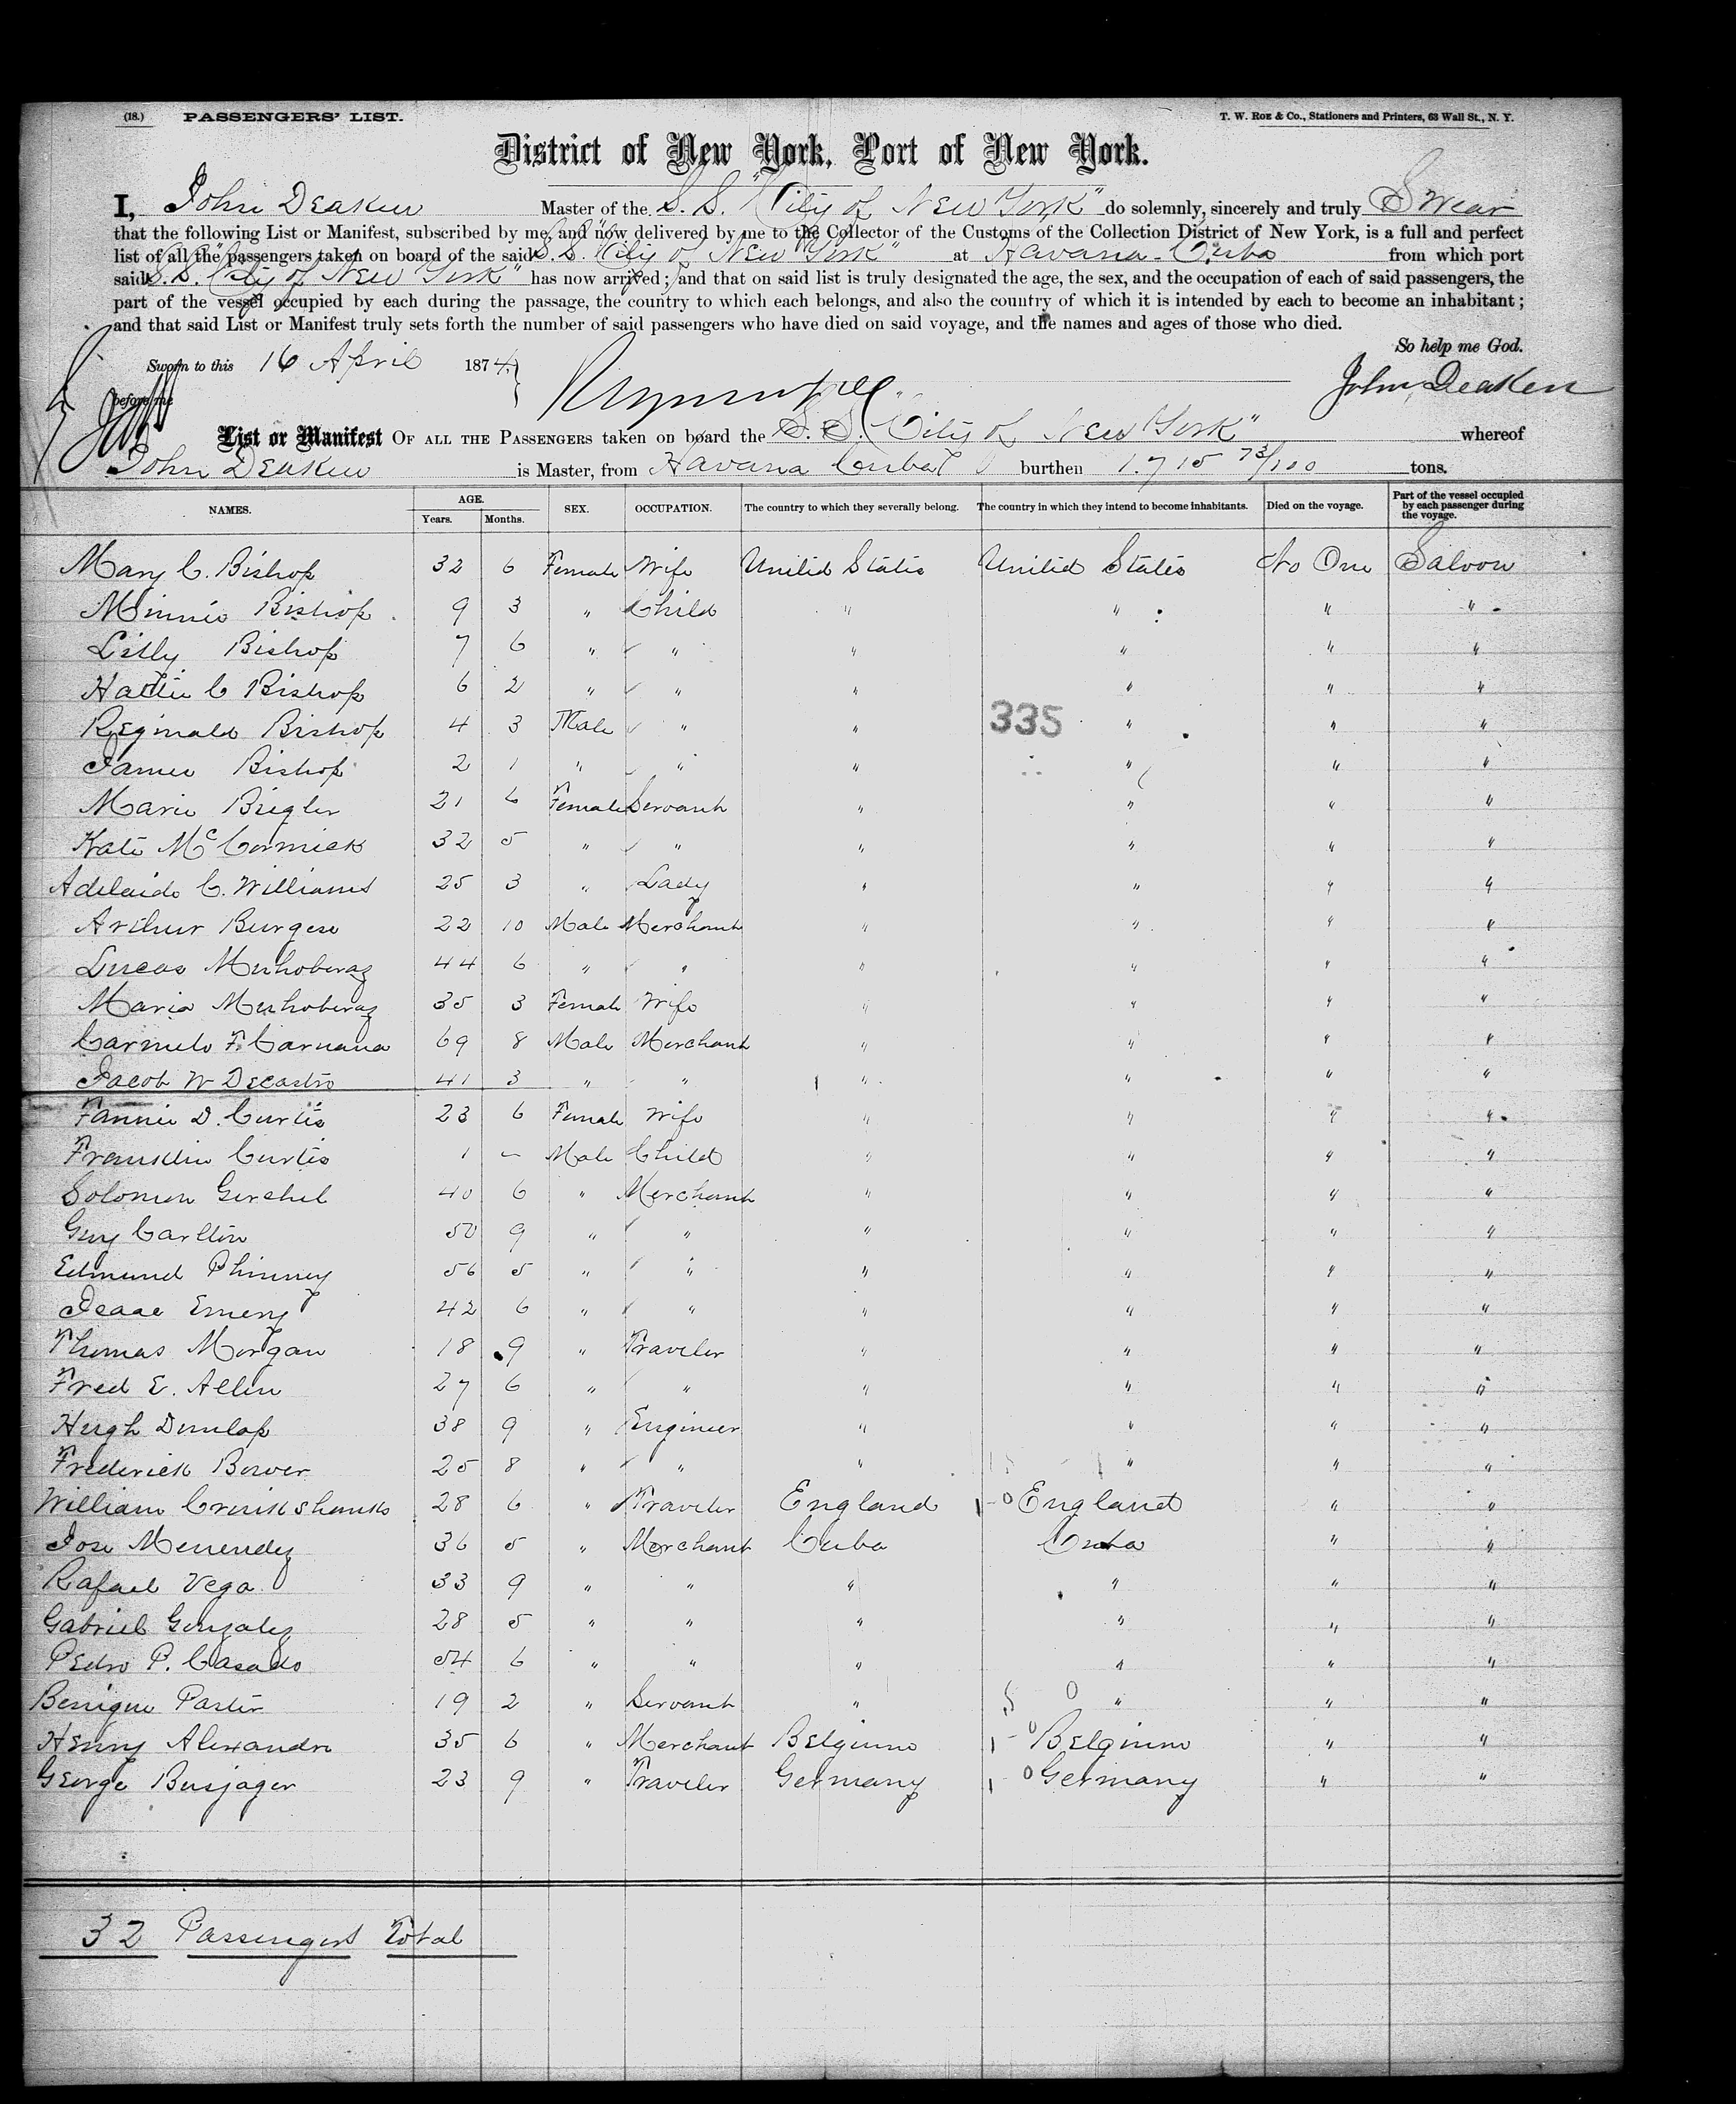 (18.) PASSENGERS' LIST. T. W. Roe & Co., Stationers and Printers, 63 Wall St., N. Y.
District of New York, Port of New York.
I, John Deaken Master of the S. S. "City of New York" do solemnly, sincerely and truly Swear
that the following List or Manifest, subscribed by me, and now delivered by me to the Collector of the Customs of the Collection District of New York, is a full and perfect
list of all the passengers taken on board of the said S. S. "City of New York" at Havana Cuba from which port
said S. S. "City of New York" has now arrived; and that on said list is truly designated the age, the sex, and the occupation of each of said passengers, the
part of the vessel occupied by each during the passage, the country to which each belongs, and also the country of which it is intended by each to become an inhabitant;
and that said List or Manifest truly sets forth the number of said passengers who have died on said voyage, and the names and ages of those who died.
So help me God.
Sworn to this 16 April 1874
before me John Deaken
List or Manifest OF ALL THE PASSENGERS taken on board the S. S. "City of New York" whereof
John Deaken is Master, from Havana Cuba burthen 1.715 73/100 tons.
NAMES. AGE. Years. Months. SEX. OCCUPATION. The country to which they severally belong. The country in which they intend to become inhabitants. Died on the voyage. Part of the vessel occupied by each passenger during the voyage.
Mary C. Bishop 32 6 Female Wife United States United States No One Saloon
Minnie Bishop 9 3 " Child " " " "
Lilly Bishop 7 6 " " " " " "
Hattie C Bishop 6 2 " " " " " "
Reginald Bishop 4 3 Male " " 335 " " "
James Bishop 2 1 " " " " " "
Marie Biegler 21 6 Female Servant " " " "
Kate McCormick 32 5 " " " " " "
Adelaide C. Williams 25 3 " Lady " " " "
Arthur Burgess 22 10 Male Merchant " " " "
Lucas 44 6 " " " " " "
Maria 35 3 Female Wife " " " "
Carmelo F. Caruana 69 8 Male Merchant " " " "
Jacob W Decastro 41 3 " " " " " "
Fannie D. Curtis 23 6 Female Wife " " " "
Franklin Curtis 1 – Male Child " " " "
Solomon Gershel 40 6 " Merchant " " " "
Guy Carlton 50 9 " " " " " "
Edmund Phinney 56 5 " " " " " "
Isaac Emery 42 6 " " " " " "
Thomas Morgan 18 9 " Traveler " " " "
Fred E. Allen 27 6 " " " " " "
Hugh Dunlap 38 9 " Engineer " " " "
Frederick Bower 25 8 " " " " " "
William Cruikshanks 28 6 " Traveler England 1-0 England " "
Jose Menendez 36 5 " Merchant Cuba Cuba " "
Rafael Vega 33 9 " " " " " "
Gabriel Gonzalez 28 5 " " " " " "
Pedro P. Casado 54 6 " " " " " "
19 2 " Servant " 5 0 " " "
Henry Alexandre 35 6 " Merchant Belgium 1-0 Belgium " "
George Busjager 23 9 " Traveler Germany 1-0 Germany " "
32 Passengers Total